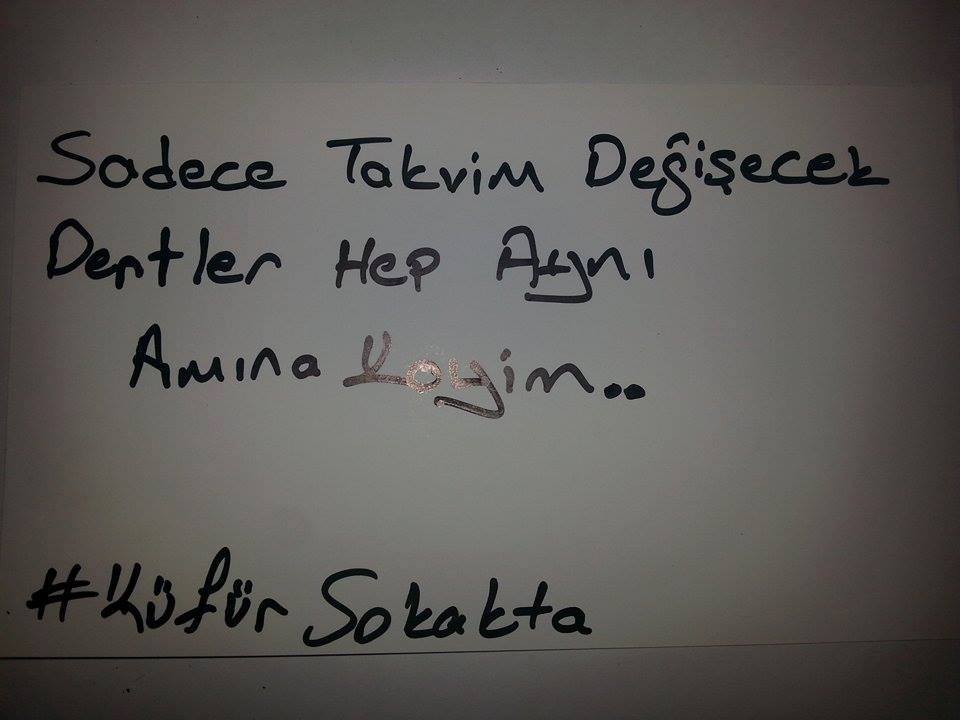 Sadece Takvim Değişecek
Dertler Hep Aynı
Amına Koyim..
#Küfür Sokakta